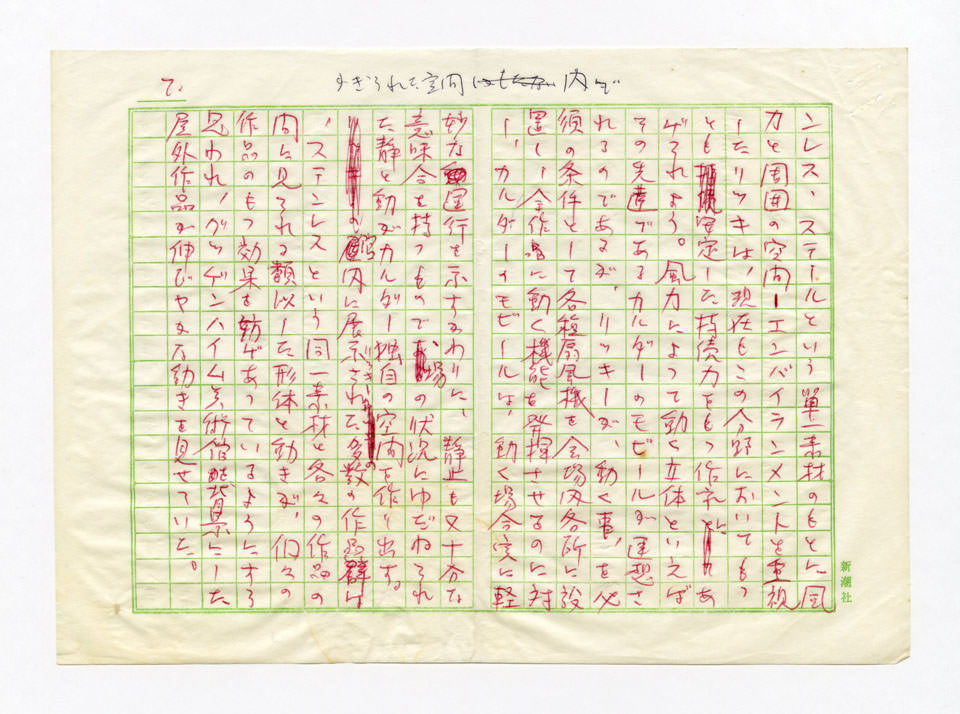 7.
かぎられた空間内で
ンレス・ステールという単一素材のもとに風
力と周囲の空間―エンバイランメントを重視
したリッキは、現在もこの分野においてもっ
とも安定した持続力をもつ作家とあ
げられよう。風力によって動く立体といえば
その先達であるカルダーのモビールが連想さ
れるのであるが、リッキーが、動く事を必
須の条件として各種扇風機を会場内各所に設
置し、全作品に動く機能を発揮させるのに対
し、カルダーのモビールは、動く場合実に軽
妙な運行を示すかわりに、静止も又十分な
意味合を持つものでの状況にゆだねられ
た静と動がカルダー独自の空間を作り出す。
の館内に展示されたリッキーの多数の作品群は
、ステンレスという同一素材と各々の作品の
間に見られる類似した形体と動きが、個々の
作品のもつ効果を妨げあっているようにすら
思われ、グッゲンハイム美術館を背景にした
屋外作品が伸びやかな動きを見せていた。
新潮社